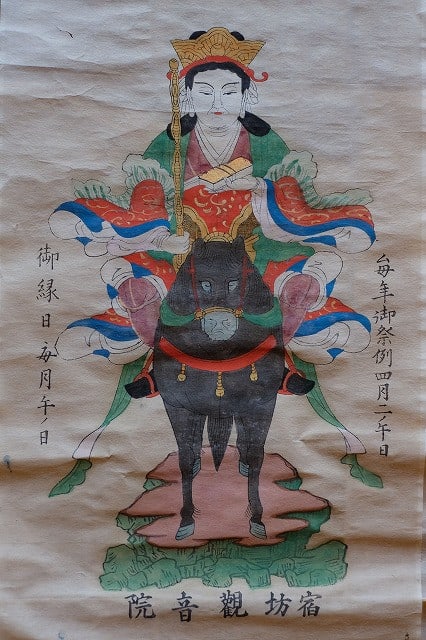 毎年御祭例四月二ノ午日
御縁日毎月午ノ日
宿坊觀音院